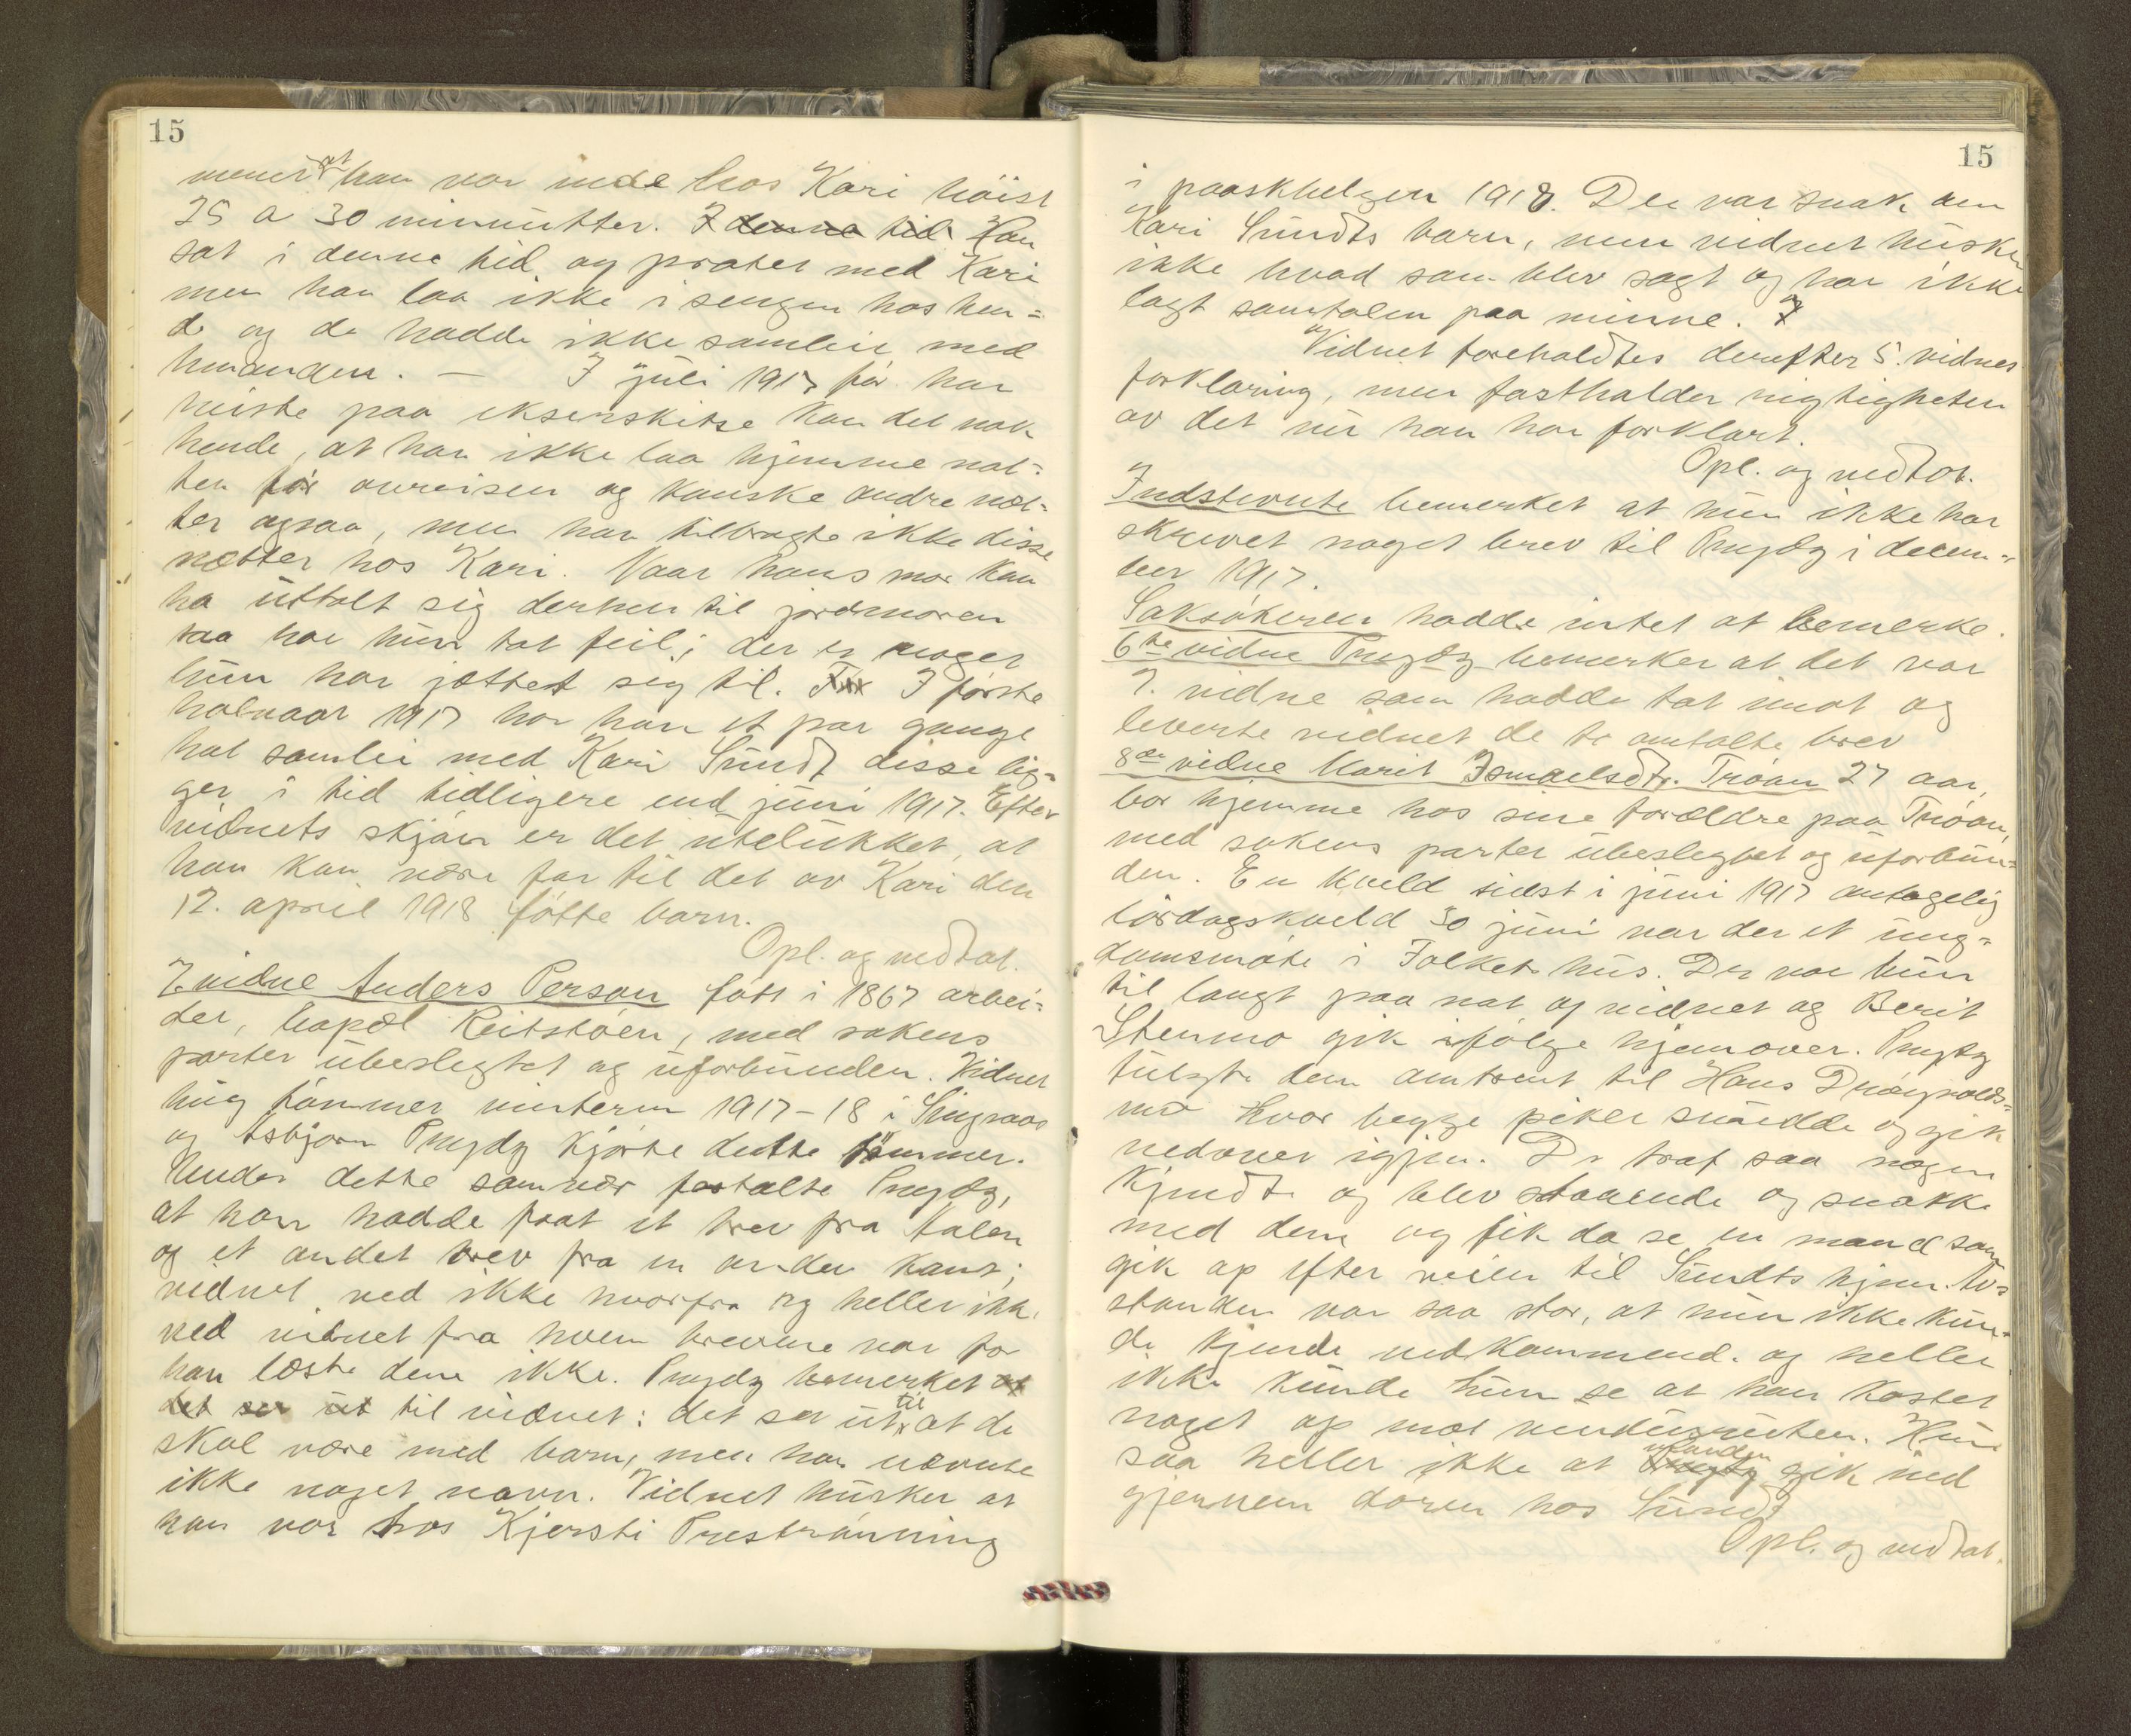 15
mener at han var inde hos Kari høist
25 a 30 minnutter. I denne tid Han
sat i denne tid og pratet med Kari
men han laa ikke i sengen hos hen=
de og de hadde ikke samleie med
hverandre. — I juli 1917 før han
reiste paa ekserskitse kan det nok
hende, at han ikke laa hjemme nat=
ten før avreisen og kanske andre næt=
ter ogsaa, men han tilbragte ikke disse
nætter hos Kari. Naar hans mor kan
ha uttalt sig derhen til jordmoren
saa har hun tat feil; der er noget
hun har jættet sig til. I første
halvaar 1917 har han et par gange
hat samleie med Kari Sundt disse lig=
ger i tid tidligere end juni 1917. Efter
vidnets skjøn er det utelukket, at
han kan være far til det av Kari den
12. april 1918 fötte barn.
Opl. og vedtat.
7. vidne Anders Person født i 1867 arbei=
der, bopæl Reitstøen, med sakens
parter ubeslegtet og uforbunden. Vidnet
hug tømmer vinteren 1917-18 i Singsaas
og Asbjørn Prugdz kjørte dette tømmer.
Under dette samvær fortalte Prugdz,
at han hadde faat et brev fra Aalen
og et andet brev fra en anden kant;
vidnet ved ikke hvorfra og heller ikke
ved vidnet fra hvem brevene var for
han læste dem ikke. Prugdz bemerket at
det ser ut til vidnet: det ser ut til at de
skal være med barn, men han nævnte
ikke noget navn. Vidnet husker at
han var hos Kjersti Prestrønning
15
i paaskhelgen 1918. Der var snak om
Kari Sundts barn, men vidnet husker
ikke hvad som blev sagt og har ikke
lagt samtalen paa minne.
Vidnet foreholdtes derefter 5. vidnes
forklaring, men fastholder rigtigheten
av det nu han har forklart.
Opl. og vedtat.
Indstevnte bemerket at hun ikke har
skrevet noget brev til Prugdz i decem=
ber 1917.
Saksøkeren hadde intet at bemerke.
6te vidne Prugdz bemerker at det var
7. vidne som hadde tat imot og
leverte vidnet de to omtalte brev
8de vidne Marit Ismaelsdtr. Trøan 27 aar,
bor hjemme hos sine forældre paa Trøan,
med sakens parter ubeslegtet og uforbun=
den. En kveld sidst i juni 1917 antagelig
lördagskveld 30 juni var der et ung=
domsmøte i Folkets hus. Der var hun
til langt paa nat og vidnet og Berit
Stenmo gik i følge hjemover. Prugdz
fulgte dem omtrent til Hans Drøynolds=
mo hvor begge piker snudde og gik
nedover igjen. De traf saa nogen
kjendte og blev staaende og snakke
med dem og fik da se en mand som
gik op efter veien til Sundts hjem. Av=
standen var saa stor, at hun ikke kun=
de kjende vedkommende og heller
ikke kunde hun se at han kastet
noget op mot vindusruten. Hun
saa heller ikke at manden gik ind
gjennem døren hos Sundt
Opl. og vedtat.